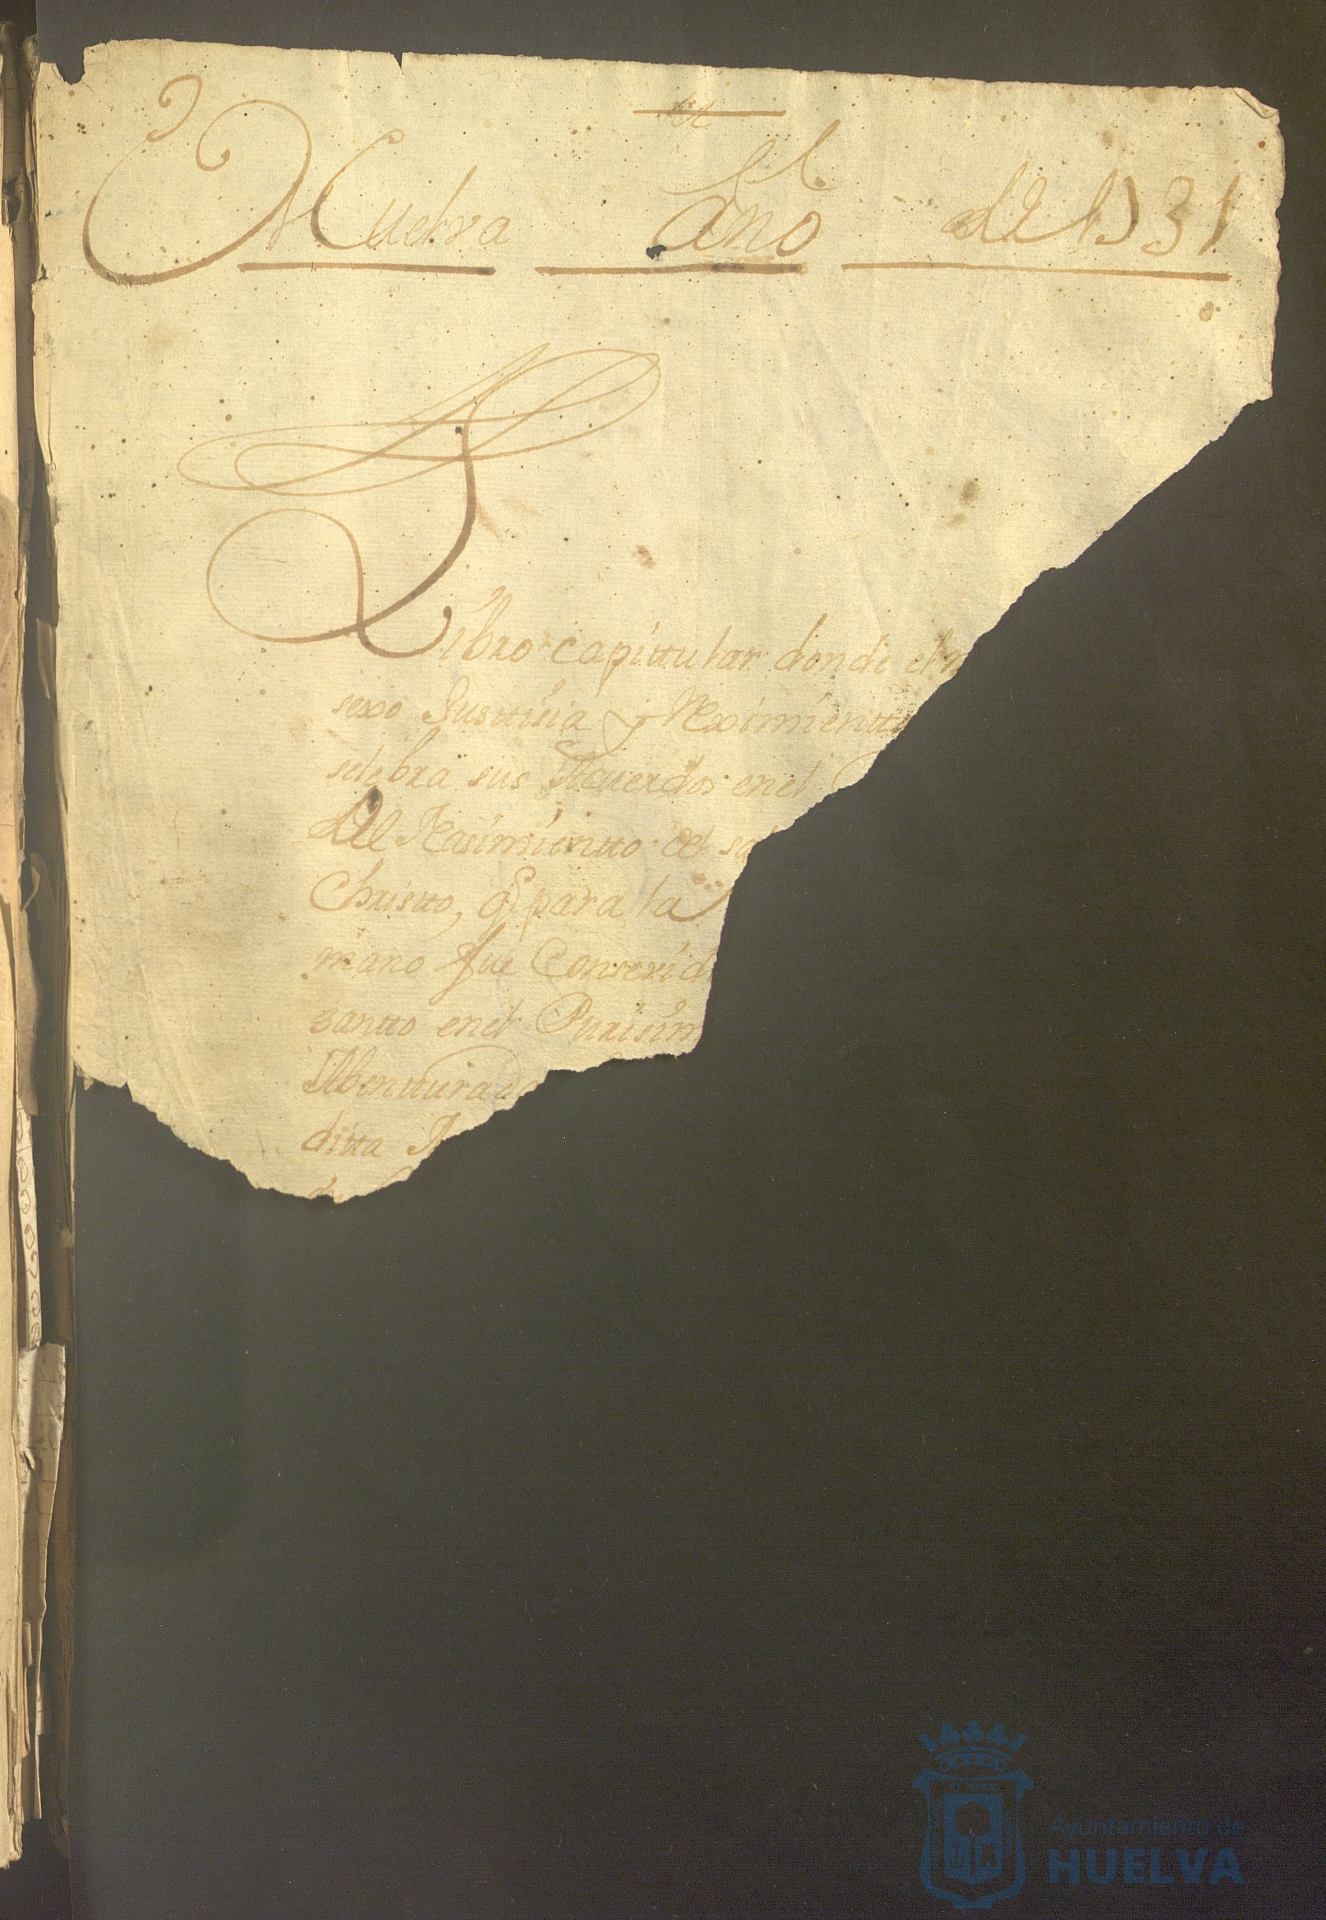 Huelva Año de 1731
Libro capittular donde el
sexo Justtisia y Reximientto
selebra sus Acuerdos en el
Del Nasimientto del
Christto, q para la
mano fue Conserid
santto en el Purisim
Abentturad
ditta
Ayuntamiento de
HUELVA